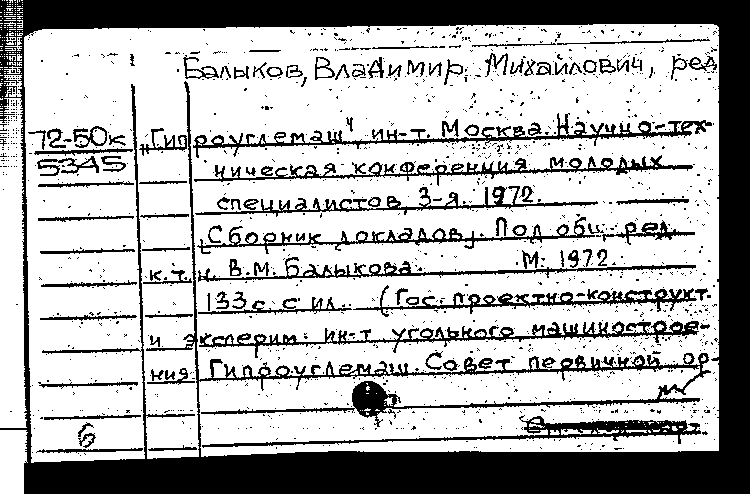 Балыков, Владимир Михайлович, ред
72-50к
5345
„Гипроуглемаш", ин-т. Москва. Научно-тех-
ническая конференция молодых
специалистов, 3-я. 1972.
[Сборник докладов]. Под общ. ред.
к.т.н. В.М. Балыкова. М., 1972.
133 с. с ил. (Гос. проектно-конструкт.
и эксперим. ин-т угольного машинострое-
ния Гипроуглемаш. Совет первичной ор-
6